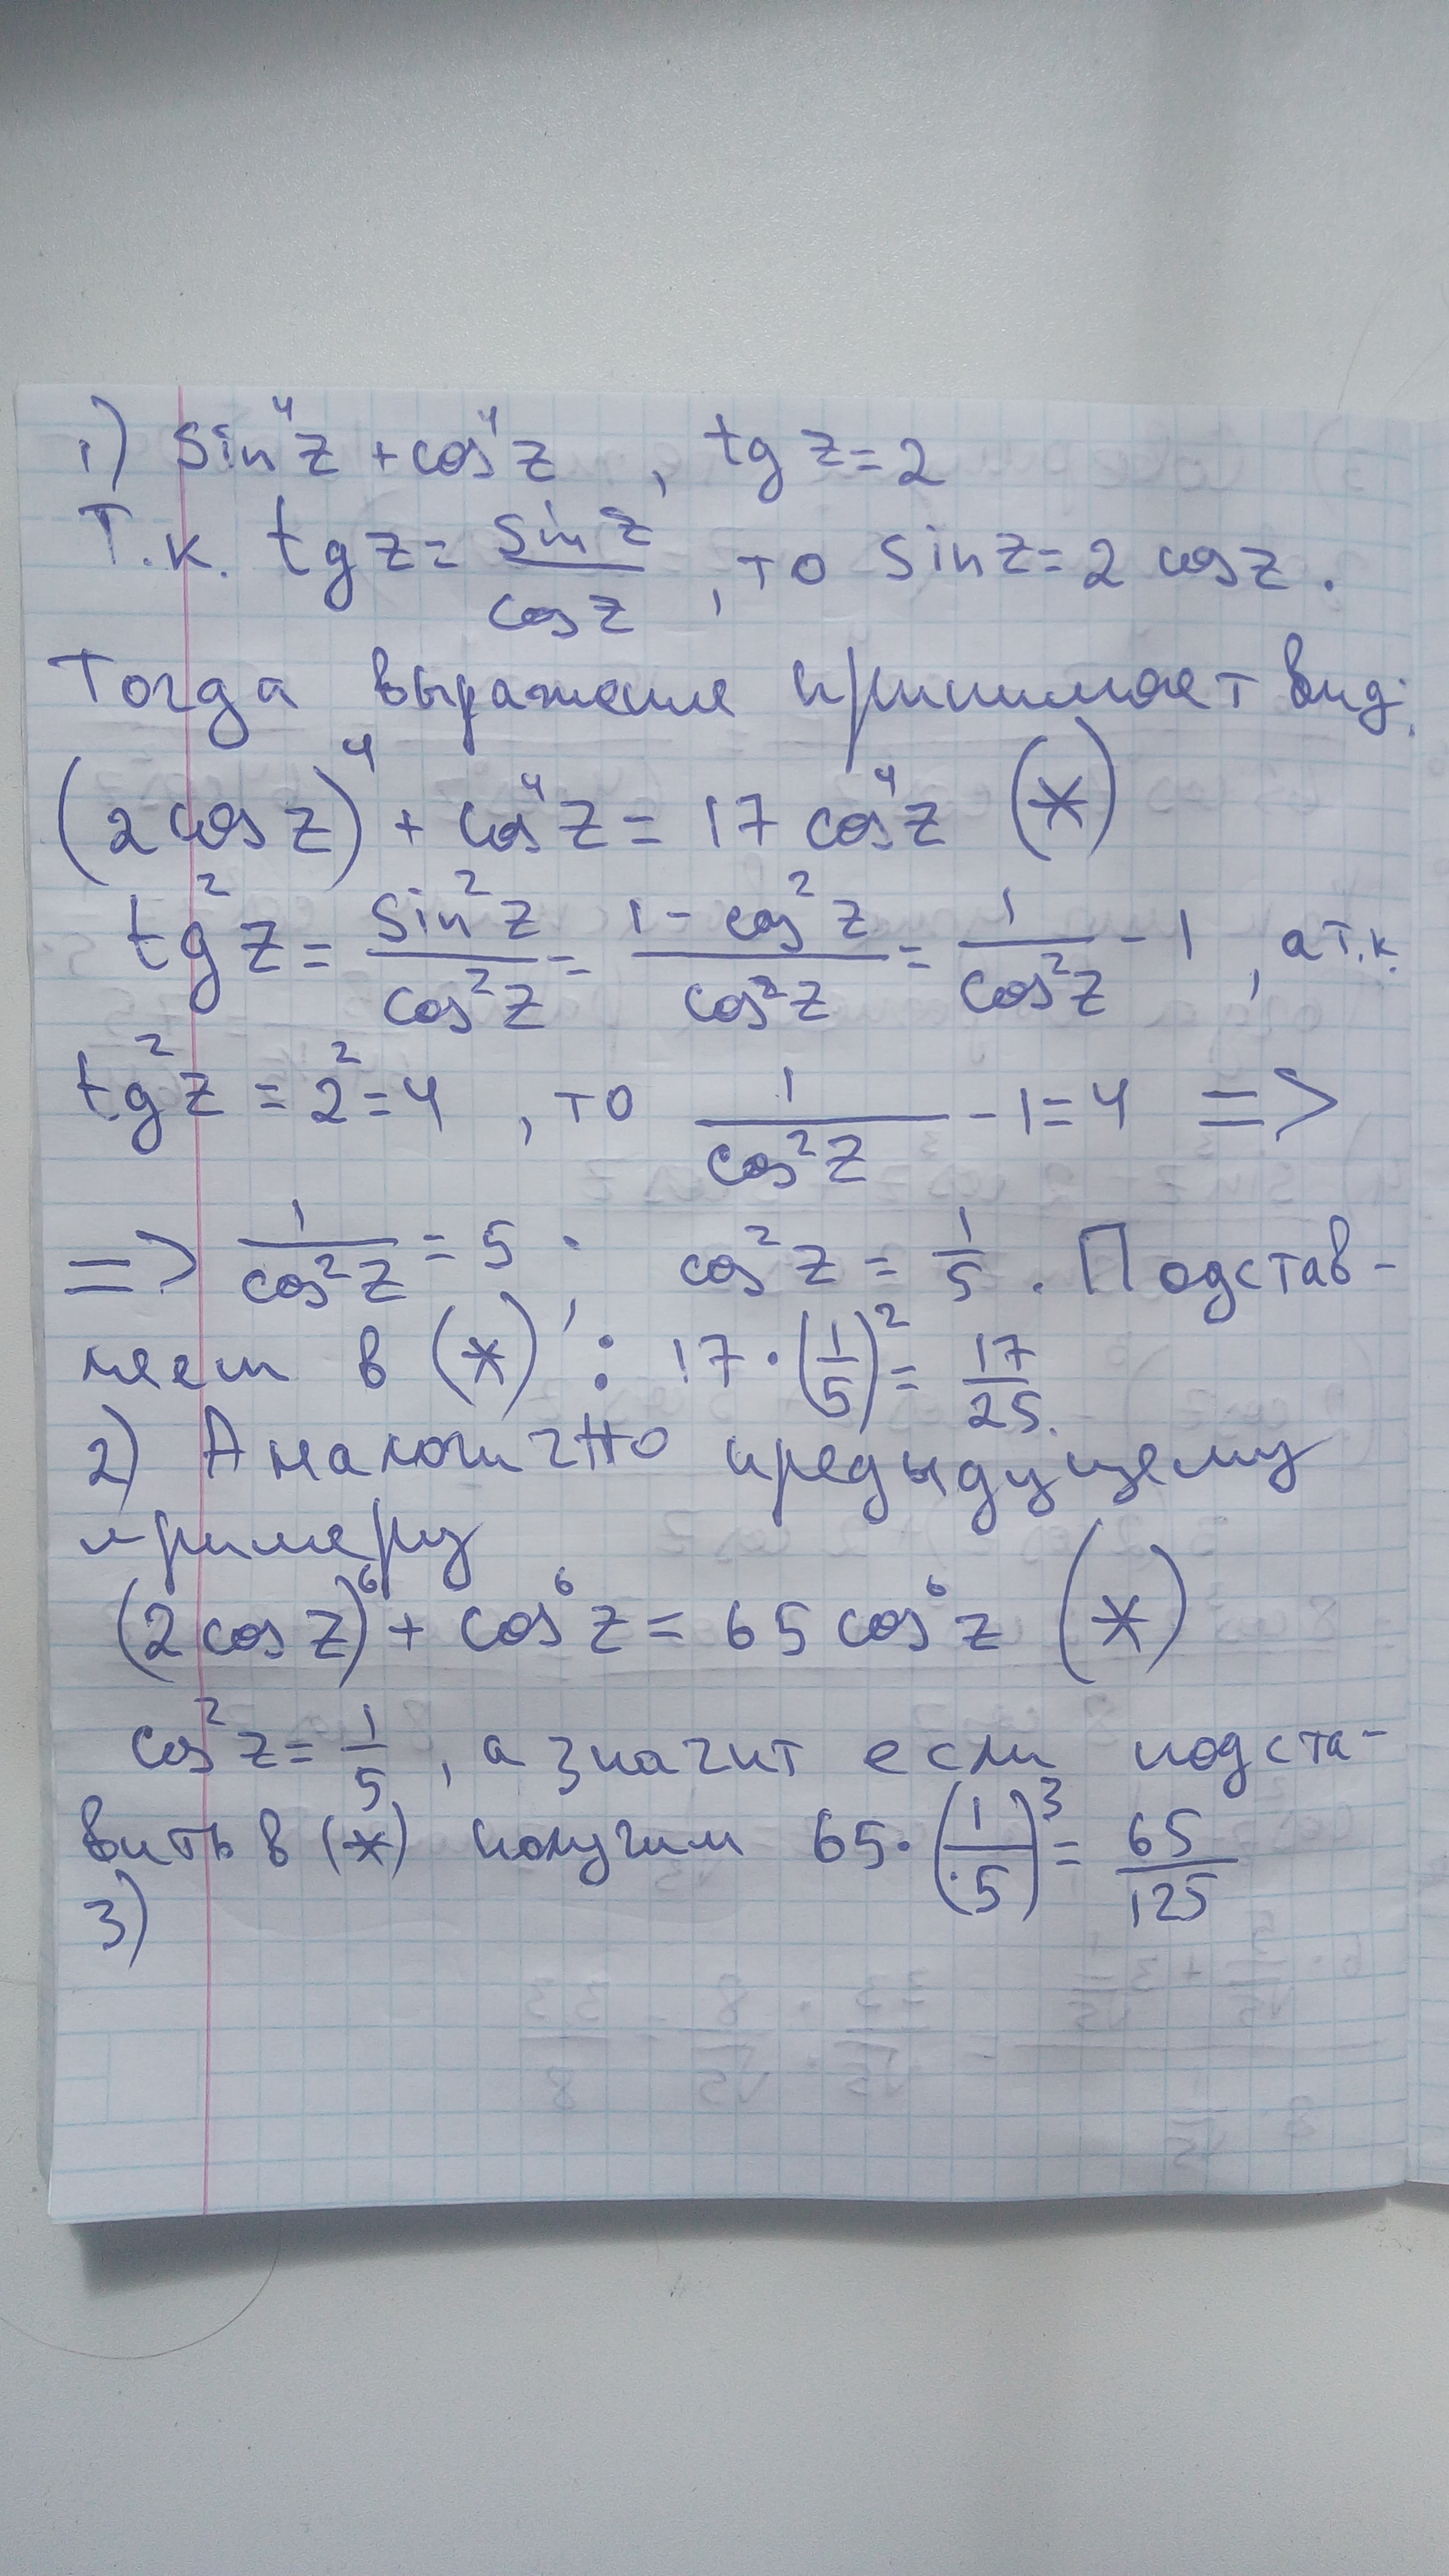 1) sin⁴z + cos⁴z , tg z = 2
Т.к. tg z = sin z / cos z , то sin z = 2 cos z .
Тогда выражение принимает вид:
(2 cos z)⁴ + cos⁴z = 17 cos⁴z (*)
tg²z = sin²z / cos²z = 1 - cos²z / cos²z = 1 / cos²z - 1 , а т.к.
tg²z = 2² = 4 , то 1 / cos²z - 1 = 4 =>
=> 1 / cos²z = 5 ; cos²z = 1/5 . Подстав-
ляем в (*) : 17 · (1/5)² = 17/25.
2) Аналогично предыдущему
примеру
(2 cos z)⁶ + cos⁶z = 65 cos⁶z (*)
cos²z = 1/5 , а значит если подста-
вить в (*) получим 65 · (1/5)³ = 65/125
3)